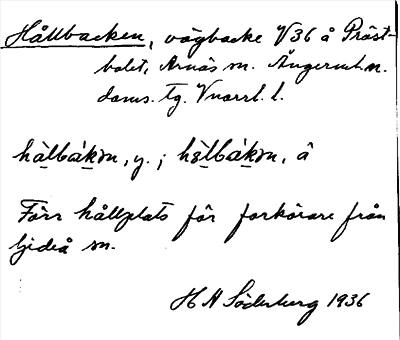 Hållbacken, vägbacke V36 å Präst-
bolet, Arnäs sn. Ångerml. n.
doms. tg. Vnorrl. l.
hàlbák̠ən, y. ; hə̀lbák̠ən, â
Förr hållplats för forkörare från
Gideå sn.
H A Söderberg 1936